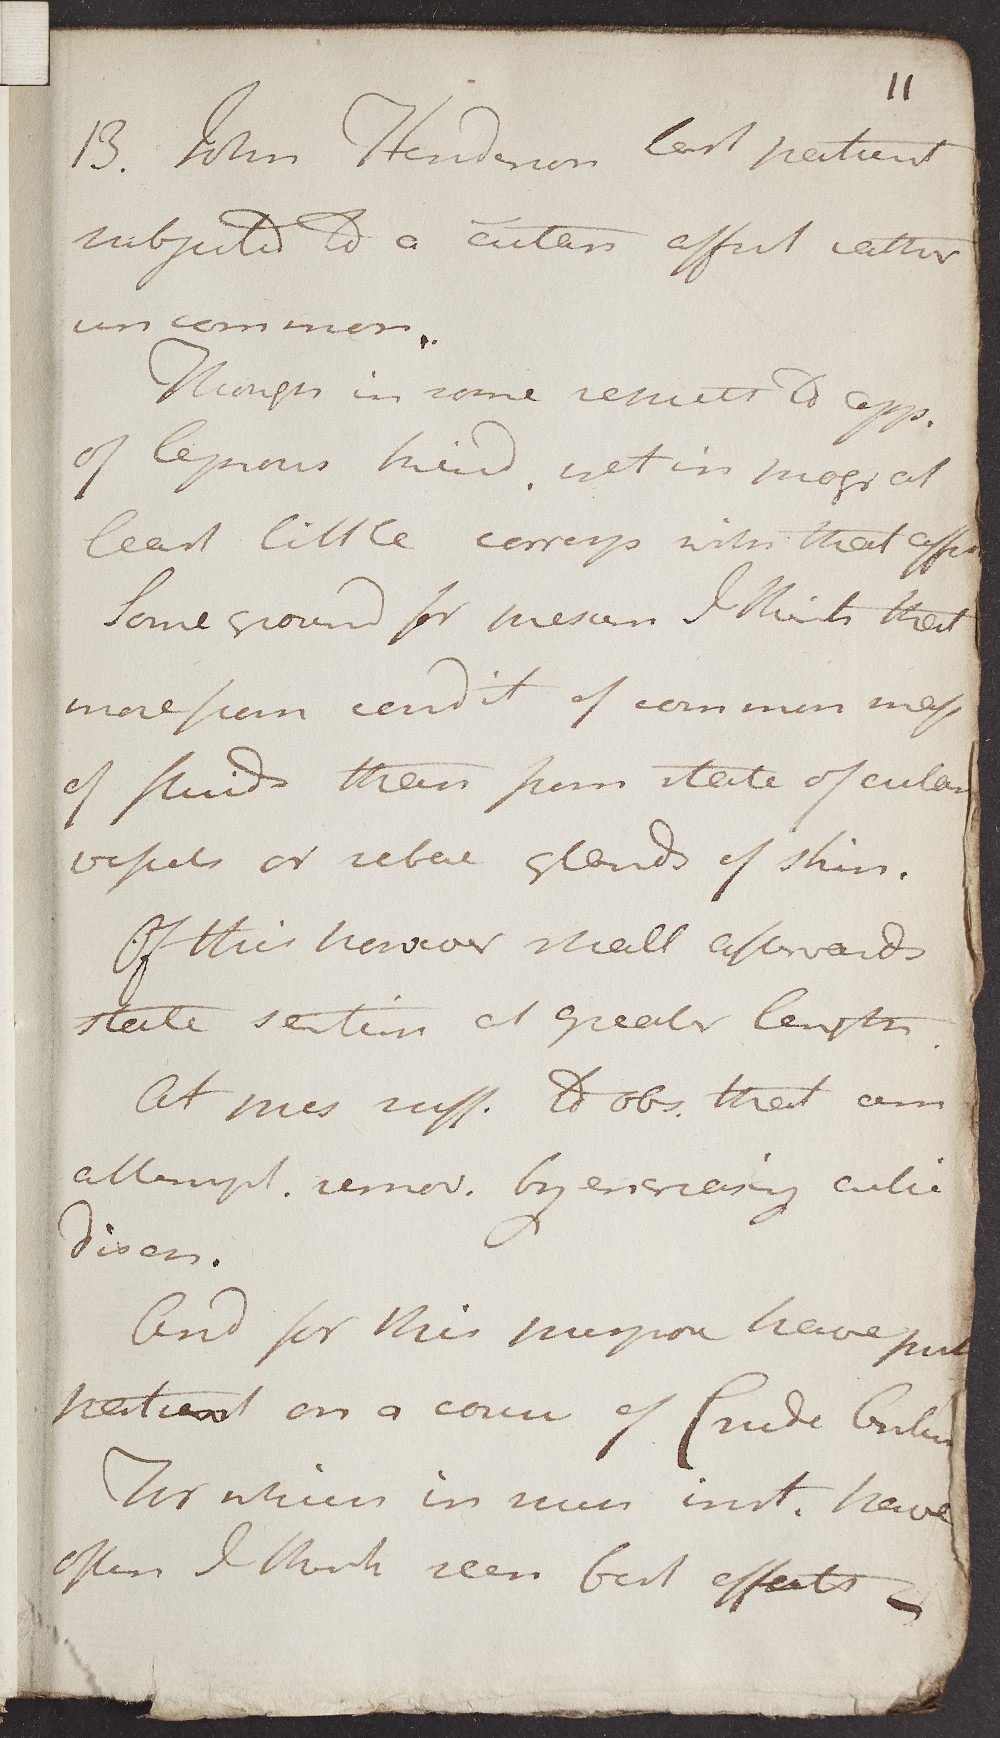 11
13. John Henderson last patient
subjected to a cutan affect rather
uncommon.
Though in some respects to app.
of leprous kind. yet in progr at
least little corresp with that affec
Some ground for presum I think that
more from condit of common mass
of fluids than from state of cutan
vessels or sebac glands of skin.
Of this however shall afterwards
state sentim at greater length.
At pres suff. to obs. that am
attempt. remov. by encreasing cutic
discas.
And for this purpose have put
patient on a course of Crude Antim
For which in such inst. have
often I think seen best effects